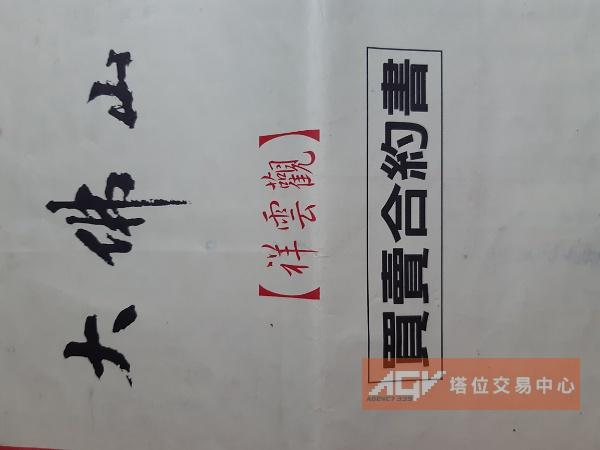 大佛山
【祥雲觀】
買賣合約書
AGV 塔位交易中心
AGENCY 339